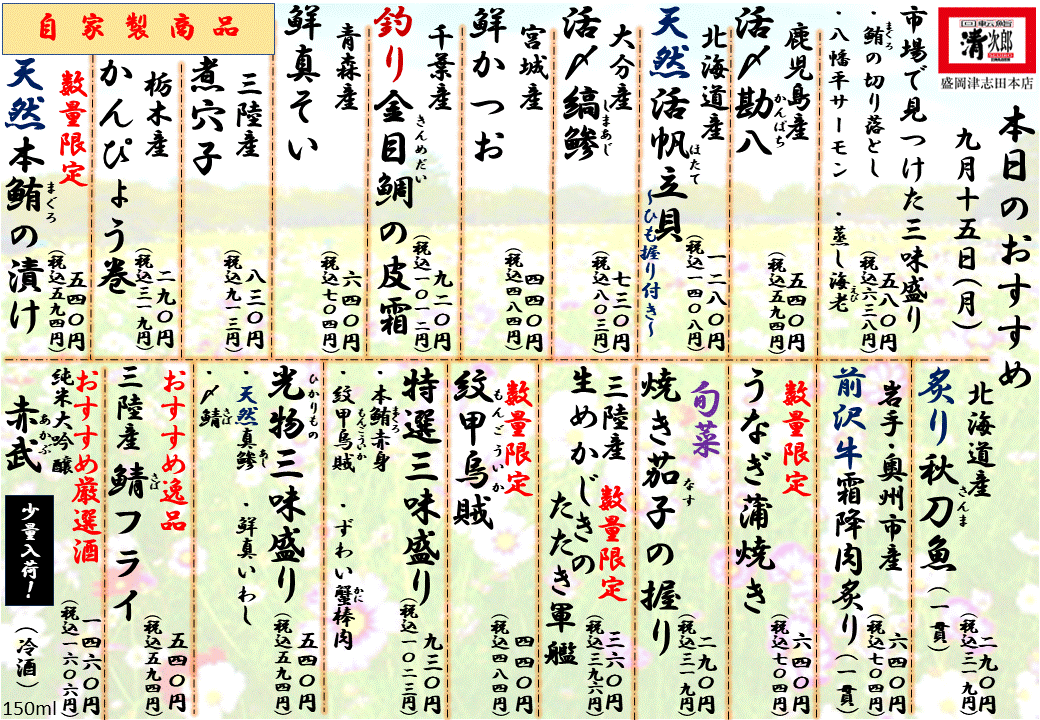 回転鮨
清次郎
SEIJIRO
盛岡津志田本店
本日のおすすめ
九月十五日(月)
市場で見つけた三味盛り
まぐろ
・鮪の切り落とし
・八幡平サーモン ・蒸し海老
えび
五八〇円
(税込六三八円)
鹿児島産
活〆勘八
かんぱち
五四〇円
(税込五九四円)
北海道産
天然活帆立貝
ほたて
~ひも握り付き~
一二八〇円
(税込一四〇八円)
大分産
活〆縞鯵
しまあじ
七三〇円
(税込八〇三円)
宮城産
鮮かつお
四四〇円
(税込四八四円)
千葉産
釣り金目鯛の皮霜
きんめだい
九二〇円
(税込一〇一二円)
青森産
鮮真そい
六四〇円
(税込七〇四円)
自家製商品
三陸産
煮穴子
八三〇円
(税込九一三円)
栃木産
かんぴょう巻
二九〇円
(税込三一九円)
数量限定
天然本鮪の漬け
まぐろ
五四〇円
(税込五九四円)
北海道産
炙り秋刀魚(一貫)
さんま
二九〇円
(税込三一九円)
岩手・奥州市産
前沢牛霜降肉炙り(一貫)
六四〇円
(税込七〇四円)
数量限定
うなぎ蒲焼き
六四〇円
(税込七〇四円)
旬菜
焼き茄子の握り
なす
二九〇円
(税込三一九円)
三陸産
数量限定
生めかじきの
たたき軍艦
三六〇円
(税込三九六円)
数量限定
紋甲烏賊
もんごういか
四四〇円
(税込四八四円)
特選三味盛り
・本鮪赤身
まぐろ
・紋甲烏賊 ・ずわい蟹棒肉
もんごういか
かに
九三〇円
(税込一〇二三円)
光物三味盛り
ひかりもの
・天然真鯵 ・鮮真いわし
あじ
・〆鯖
さば
五四〇円
(税込五九四円)
おすすめ逸品
三陸産 鯖フライ
さば
五四〇円
(税込五九四円)
おすすめ厳選酒
純米大吟醸
赤武
あかぶ
少量入荷!
(冷酒)
一四六〇円
(税込一六〇六円)
150ml